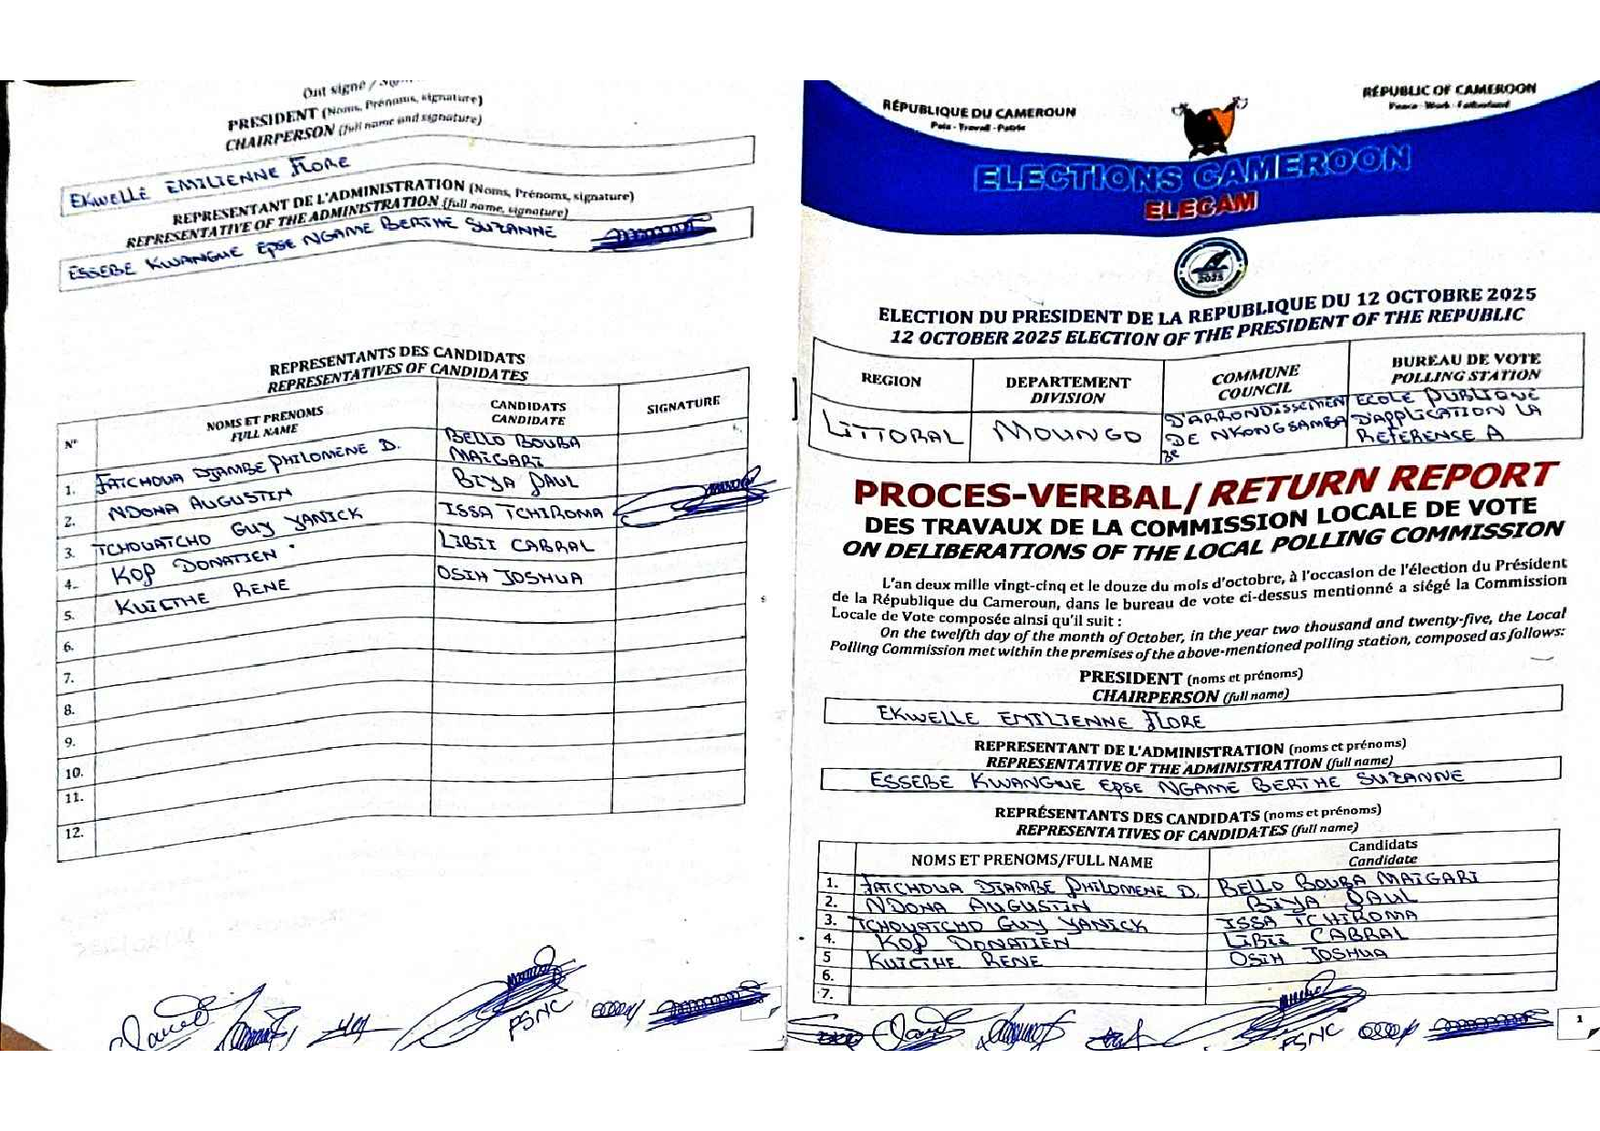 Ont signé /
PRESIDENT (Noms, Prénoms, signature)
CHAIRPERSON (full name and signature)
EKWELLE EMILIENNE FLORE
REPRESENTANT DE L'ADMINISTRATION (Noms, Prénoms, signature)
REPRESENTATIVE OF THE ADMINISTRATION (full name, signature)
ESSEBE KWANGNE Epse NGAME BERTHE SUZANNE
REPRESENTANTS DES CANDIDATS
REPRESENTATIVES OF CANDIDATES
N° NOMS ET PRENOMS FULL NAME CANDIDATS CANDIDATE SIGNATURE
1. FATCHOUA DJAMBE PHILOMENE D. BELLO BOUBA MAIGARI
2. NDONA AUGUSTIN BIYA PAUL
3. TCHOUATCHO GUY YANICK ISSA TCHIROMA
4. KOP DONATIEN LIBII CABRAL
5. KUICTHE RENE OSIH JOSHUA
6.
7.
8.
9.
10.
11.
12.
FSNC
RÉPUBLIQUE DU CAMEROUN
Paix - Travail - Patrie
RÉPUBLIC OF CAMEROON
Peace - Work - Fatherland
ELECTIONS CAMEROON
ELECAM
2025
ELECTION DU PRESIDENT DE LA REPUBLIQUE DU 12 OCTOBRE 2025
12 OCTOBER 2025 ELECTION OF THE PRESIDENT OF THE REPUBLIC
REGION DEPARTEMENT DIVISION COMMUNE COUNCIL BUREAU DE VOTE POLLING STATION
LITTORAL MOUNGO D'ARRONDISSEMENT DE NKONGSAMBA ECOLE PUBLIQUE D'APPLICATION LA REFERENCE A
PROCES-VERBAL / RETURN REPORT
DES TRAVAUX DE LA COMMISSION LOCALE DE VOTE
ON DELIBERATIONS OF THE LOCAL POLLING COMMISSION
L'an deux mille vingt-cinq et le douze du mois d'octobre, à l'occasion de l'élection du Président
de la République du Cameroun, dans le bureau de vote ci-dessus mentionné a siégé la Commission
Locale de Vote composée ainsi qu'il suit :
On the twelfth day of the month of October, in the year two thousand and twenty-five, the Local
Polling Commission met within the premises of the above-mentioned polling station, composed as follows:
PRESIDENT (noms et prénoms)
CHAIRPERSON (full name)
EKWELLE EMILIENNE FLORE
REPRESENTANT DE L'ADMINISTRATION (noms et prénoms)
REPRESENTATIVE OF THE ADMINISTRATION (full name)
ESSEBE KWANGNE Epse NGAME BERTHE SUZANNE
REPRÉSENTANTS DES CANDIDATS (noms et prénoms)
REPRESENTATIVES OF CANDIDATES (full name)
NOMS ET PRENOMS/FULL NAME Candidats Candidate
1. FATCHOUA DJAMBE PHILOMENE D. BELLO BOUBA MAIGARI
2. NDONA AUGUSTIN BIYA PAUL
3. TCHOUATCHO GUY YANICK ISSA TCHIROMA
4. KOP DONATIEN LIBII CABRAL
5 KUICTHE RENE OSIH JOSHUA
6.
7.
FSNC
1